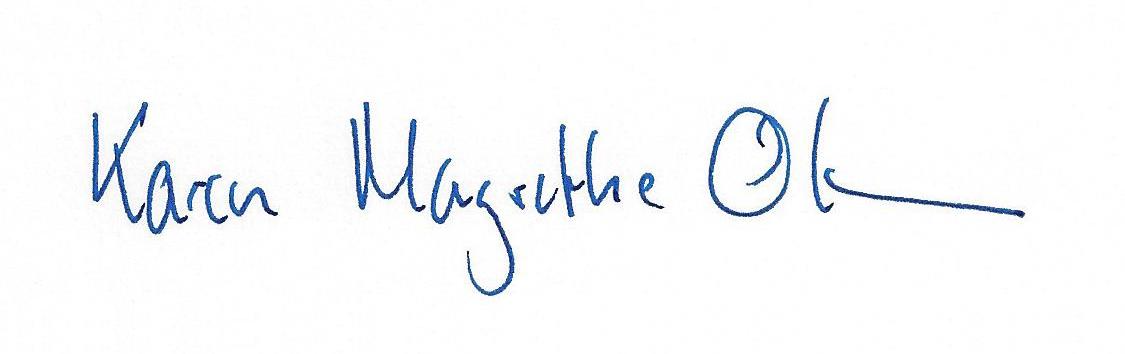 Karen Magrethe